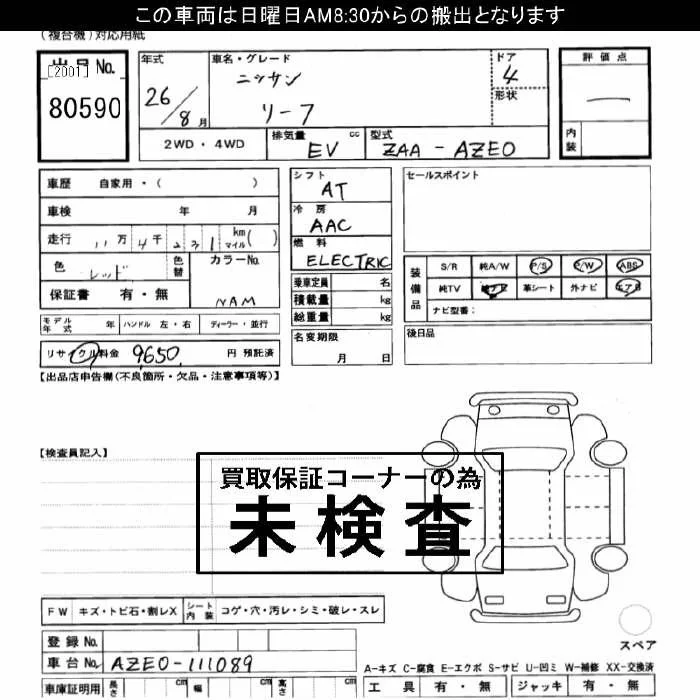 この車両は日曜日AM8:30からの搬出となります
(複合機)対応用紙
出品No.
[2001]
80590
年式
26/8月
車名・グレード
ニッサン
リーフ
ドア
4
形状
評価点
内装
2WD・4WD
排気量 cc
EV
型式
ZAA-AZE0
車歴 自家用・( )
車検 年 月
走行 11万4千231 km マイル( )
色 レッド 色替
カラーNo.
NAM
保証書 有・無
シフト
AT
冷房
AAC
燃料
ELECTRIC
乗車定員 名
積載量 kg
総重量 kg
セールスポイント
装備品
S/R 純A/W P/S P/W ABS
純TV 純ナビ 革シート 外ナビ エアB
ナビ型番:
モデル年式 年 ハンドル 左・右 ディーラー・並行
名変期限
月 日
後日品
リサイクル料金 9650 円 預託済
【出品店申告欄(不良箇所・欠品・注意事項等)】
【検査員記入】
買取保証コーナーの為
未検査
FW キズ・トビ石・割レX シート内装 コゲ・穴・汚レ・シミ・破レ・スレ
登録No.
車台No. AZE0-111089
車庫証明用 長さ cm 幅 cm 高さ cm
スペア
A-キズ C-腐食 E-エクボ S-サビ U-凹ミ W-補修 XX-交換済
工具 有・無 ジャッキ 有・無